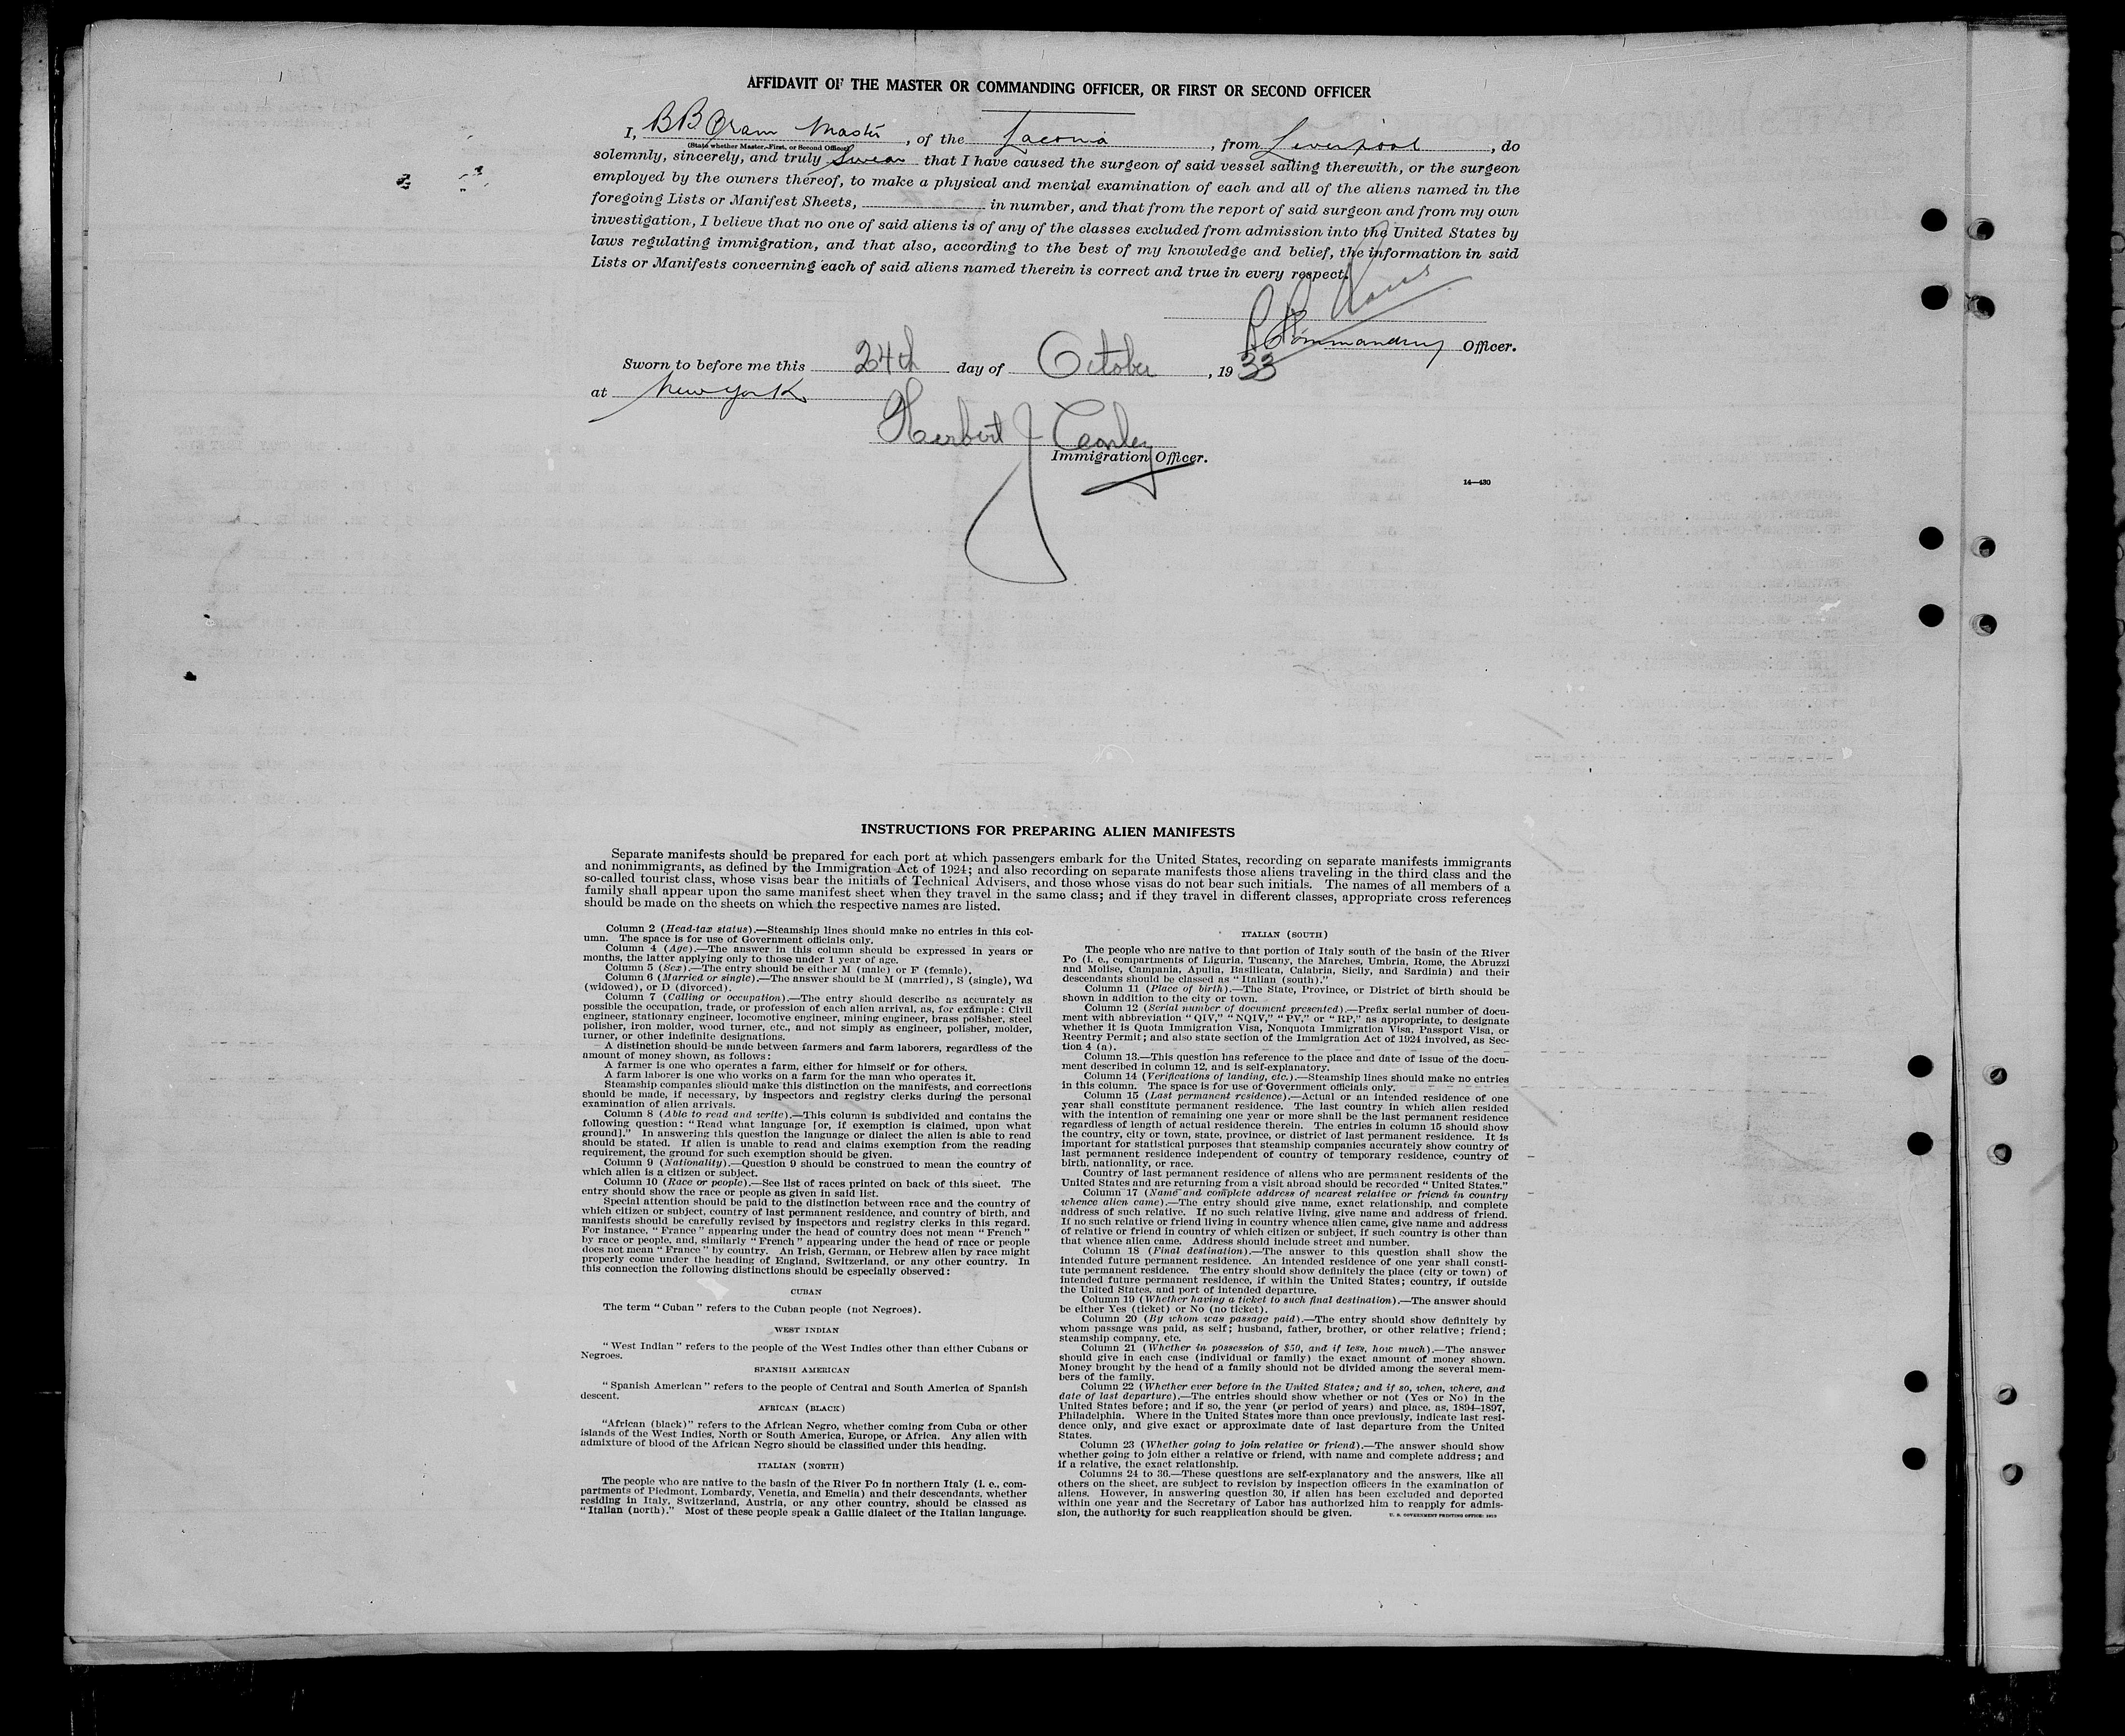 AFFIDAVIT OF THE MASTER OR COMMANDING OFFICER, OR FIRST OR SECOND OFFICER
I, B B Oram Master, of the Laconia, from Liverpool, do
(State whether Master, First, or Second Officer)
solemnly, sincerely, and truly Swear that I have caused the surgeon of said vessel sailing therewith, or the surgeon
employed by the owners thereof, to make a physical and mental examination of each and all of the aliens named in the
foregoing Lists or Manifest Sheets, in number, and that from the report of said surgeon and from my own
investigation, I believe that no one of said aliens is of any of the classes excluded from admission into the United States by
laws regulating immigration, and that also, according to the best of my knowledge and belief, the information in said
Lists or Manifests concerning each of said aliens named therein is correct and true in every respect.
Commanding Officer.
Sworn to before me this 24th day of October, 1933
at New York
Herbert J
Immigration Officer.
14—430
INSTRUCTIONS FOR PREPARING ALIEN MANIFESTS
Separate manifests should be prepared for each port at which passengers embark for the United States, recording on separate manifests immigrants
and nonimmigrants, as defined by the Immigration Act of 1924; and also recording on separate manifests those aliens traveling in the third class and the
so-called tourist class, whose visas bear the initials of Technical Advisers, and those whose visas do not bear such initials. The names of all members of a
family shall appear upon the same manifest sheet when they travel in the same class; and if they travel in different classes, appropriate cross references
should be made on the sheets on which the respective names are listed.
Column 2 (Head-tax status).—Steamship lines should make no entries in this col-
umn. The space is for use of Government officials only.
Column 4 (Age).—The answer in this column should be expressed in years or
months, the latter applying only to those under 1 year of age.
Column 5 (Sex).—The entry should be either M (male) or F (female).
Column 6 (Married or single).—The answer should be M (married), S (single), Wd
(widowed), or D (divorced).
Column 7 (Calling or occupation).—The entry should describe as accurately as
possible the occupation, trade, or profession of each alien arrival, as, for example: Civil
engineer, stationary engineer, locomotive engineer, mining engineer, brass polisher, steel
polisher, iron molder, wood turner, etc., and not simply as engineer, polisher, molder,
turner, or other indefinite designations.
A distinction should be made between farmers and farm laborers, regardless of the
amount of money shown, as follows:
A farmer is one who operates a farm, either for himself or for others.
A farm laborer is one who works on a farm for the man who operates it.
Steamship companies should make this distinction on the manifests, and corrections
should be made, if necessary, by inspectors and registry clerks during the personal
examination of alien arrivals.
Column 8 (Able to read and write).—This column is subdivided and contains the
following question: "Read what language [or, if exemption is claimed, upon what
ground]." In answering this question the language or dialect the alien is able to read
should be stated. If alien is unable to read and claims exemption from the reading
requirement, the ground for such exemption should be given.
Column 9 (Nationality).—Question 9 should be construed to mean the country of
which alien is a citizen or subject.
Column 10 (Race or people).—See list of races printed on back of this sheet. The
entry should show the race or people as given in said list.
Special attention should be paid to the distinction between race and the country of
which citizen or subject, country of last permanent residence, and country of birth, and
manifests should be carefully revised by inspectors and registry clerks in this regard.
For instance, "France" appearing under the head of country does not mean "French"
by race or people, and, similarly "French" appearing under the head of race or people
does not mean "France" by country. An Irish, German, or Hebrew alien by race might
properly come under the heading of England, Switzerland, or any other country. In
this connection the following distinctions should be especially observed:
CUBAN
The term "Cuban" refers to the Cuban people (not Negroes).
WEST INDIAN
"West Indian" refers to the people of the West Indies other than either Cubans or
Negroes.
SPANISH AMERICAN
"Spanish American" refers to the people of Central and South America of Spanish
descent.
AFRICAN (BLACK)
"African (black)" refers to the African Negro, whether coming from Cuba or other
islands of the West Indies, North or South America, Europe, or Africa. Any alien with
admixture of blood of the African Negro should be classified under this heading.
ITALIAN (NORTH)
The people who are native to the basin of the River Po in northern Italy (i. e., com-
partments of Piedmont, Lombardy, Venetia, and Emelia) and their descendants, whether
residing in Italy, Switzerland, Austria, or any other country, should be classed as
"Italian (north)." Most of these people speak a Gallic dialect of the Italian language.
ITALIAN (SOUTH)
The people who are native to that portion of Italy south of the basin of the River
Po (i. e., compartments of Liguria, Tuscany, the Marches, Umbria, Rome, the Abruzzi
and Molise, Campania, Apulia, Basilicata, Calabria, Sicily, and Sardinia) and their
descendants should be classed as "Italian (south)."
Column 11 (Place of birth).—The State, Province, or District of birth should be
shown in addition to the city or town.
Column 12 (Serial number of document presented).—Prefix serial number of docu-
ment with abbreviation "QIV," "NQIV," "PV," or "RP," as appropriate, to designate
whether it is Quota Immigration Visa, Nonquota Immigration Visa, Passport Visa, or
Reentry Permit; and also state section of the Immigration Act of 1924 involved, as Sec-
tion 4 (a).
Column 13.—This question has reference to the place and date of issue of the docu-
ment described in column 12, and is self-explanatory.
Column 14 (Verifications of landing, etc.).—Steamship lines should make no entries
in this column. The space is for use of Government officials only.
Column 15 (Last permanent residence).—Actual or an intended residence of one
year shall constitute permanent residence. The last country in which alien resided
with the intention of remaining one year or more shall be the last permanent residence
regardless of length of actual residence therein. The entries in column 15 should show
the country, city or town, state, province, or district of last permanent residence. It is
important for statistical purposes that steamship companies accurately show country of
last permanent residence independent of country of temporary residence, country of
birth, nationality, or race.
Country of last permanent residence of aliens who are permanent residents of the
United States and are returning from a visit abroad should be recorded "United States."
Column 17 (Name and complete address of nearest relative or friend in country
whence alien came).—The entry should give name, exact relationship, and complete
address of such relative. If no such relative living, give name and address of friend.
If no such relative or friend living in country whence alien came, give name and address
of relative or friend in country of which citizen or subject, if such country is other than
that whence alien came. Address should include street and number.
Column 18 (Final destination).—The answer to this question shall show the
intended future permanent residence. An intended residence of one year shall consti-
tute permanent residence. The entry should show definitely the place (city or town) of
intended future permanent residence, if within the United States; country, if outside
the United States, and port of intended departure.
Column 19 (Whether having a ticket to such final destination).—The answer should
be either Yes (ticket) or No (no ticket).
Column 20 (By whom was passage paid).—The entry should show definitely by
whom passage was paid, as self; husband, father, brother, or other relative; friend;
steamship company, etc.
Column 21 (Whether in possession of $50, and if less, how much).—The answer
should give in each case (individual or family) the exact amount of money shown.
Money brought by the head of a family should not be divided among the several mem-
bers of the family.
Column 22 (Whether ever before in the United States; and if so, when, where, and
date of last departure).—The entries should show whether or not (Yes or No) in the
United States before; and if so, the year (or period of years) and place, as, 1894–1897,
Philadelphia. Where in the United States more than once previously, indicate last resi-
dence only, and give exact or approximate date of last departure from the United
States.
Column 23 (Whether going to join relative or friend).—The answer should show
whether going to join either a relative or friend, with name and complete address; and
if a relative, the exact relationship.
Columns 24 to 36.—These questions are self-explanatory and the answers, like all
others on the sheet, are subject to revision by inspection officers in the examination of
aliens. However, in answering question 30, if alien has been excluded and deported
within one year and the Secretary of Labor has authorized him to reapply for admis-
sion, the authority for such reapplication should be given.
U. S. GOVERNMENT PRINTING OFFICE: